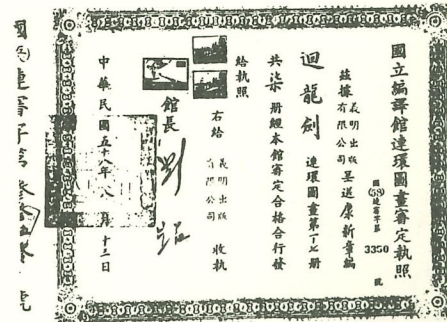 國立編譯館連環圖畫審定執照
國(58)連審字第 3350 號
茲據義明出版有限公司呈送康新章編
迴龍劍 連環圖畫第1—7冊
共柒冊經本館審定合格合行發
給執照
右給 義明出版有限公司 收執
館長 劉
中華民國五十八年八月十三日
連審字第 號